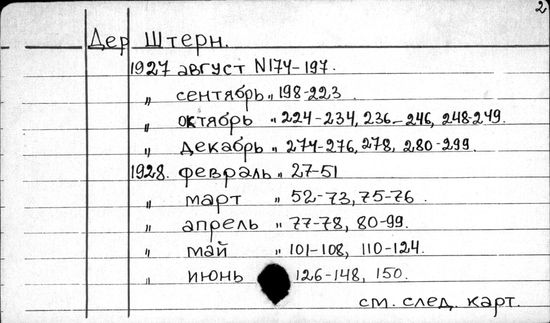 2
Дер Штерн.
1927 август N174-197.
„ сентябрь „ 198-223
„ октябрь „ 224-234, 236-246, 248-249.
„ декабрь „ 274-276, 278, 280-299.
1928. февраль „ 27-51
„ март „ 52-73, 75-76.
„ апрель „ 77-78, 80-99.
„ май „ 101-108, 110-124.
„ июнь 126-148, 150.
см. след. карт.